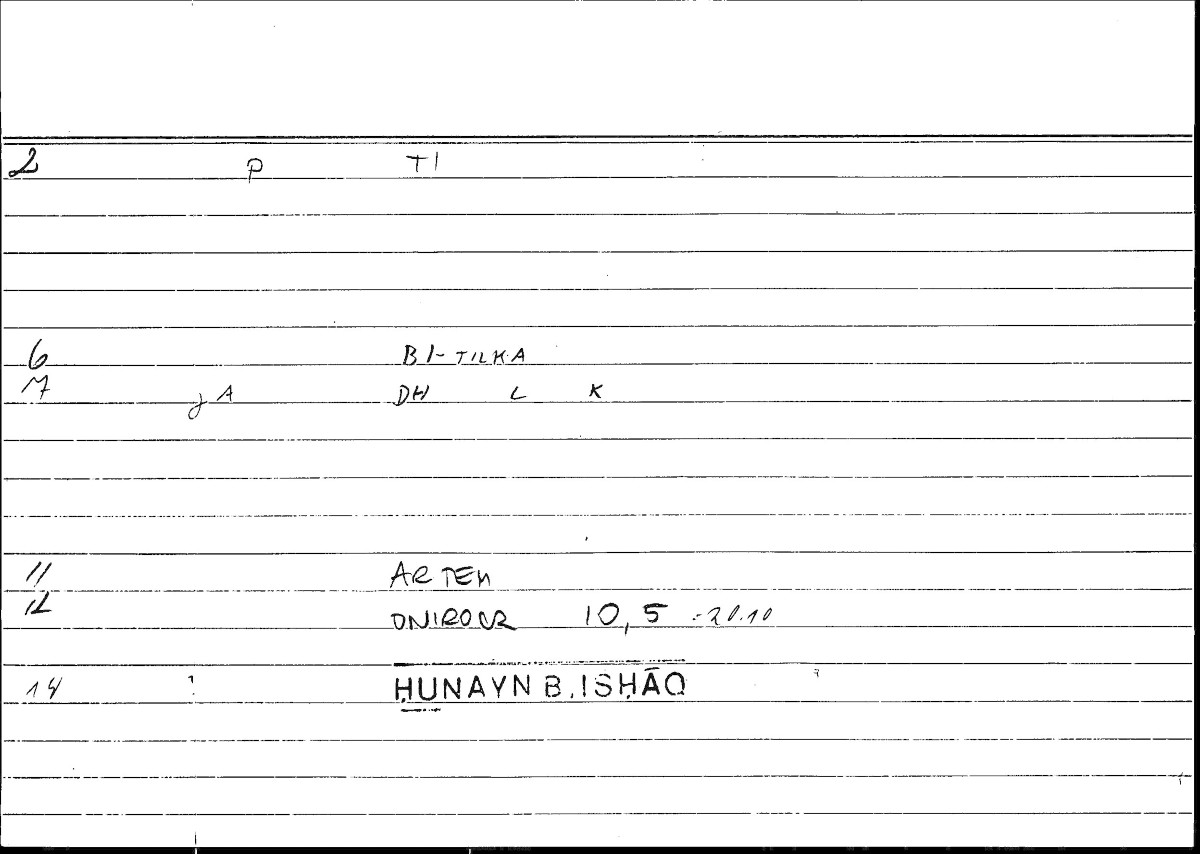 2 P TI
6 BI-TILKA
7 jA DH L K
11 ARTEM
12 ONIROCR 10,5 -20.10
14 ḤUNAYN B. ISḤĀQ